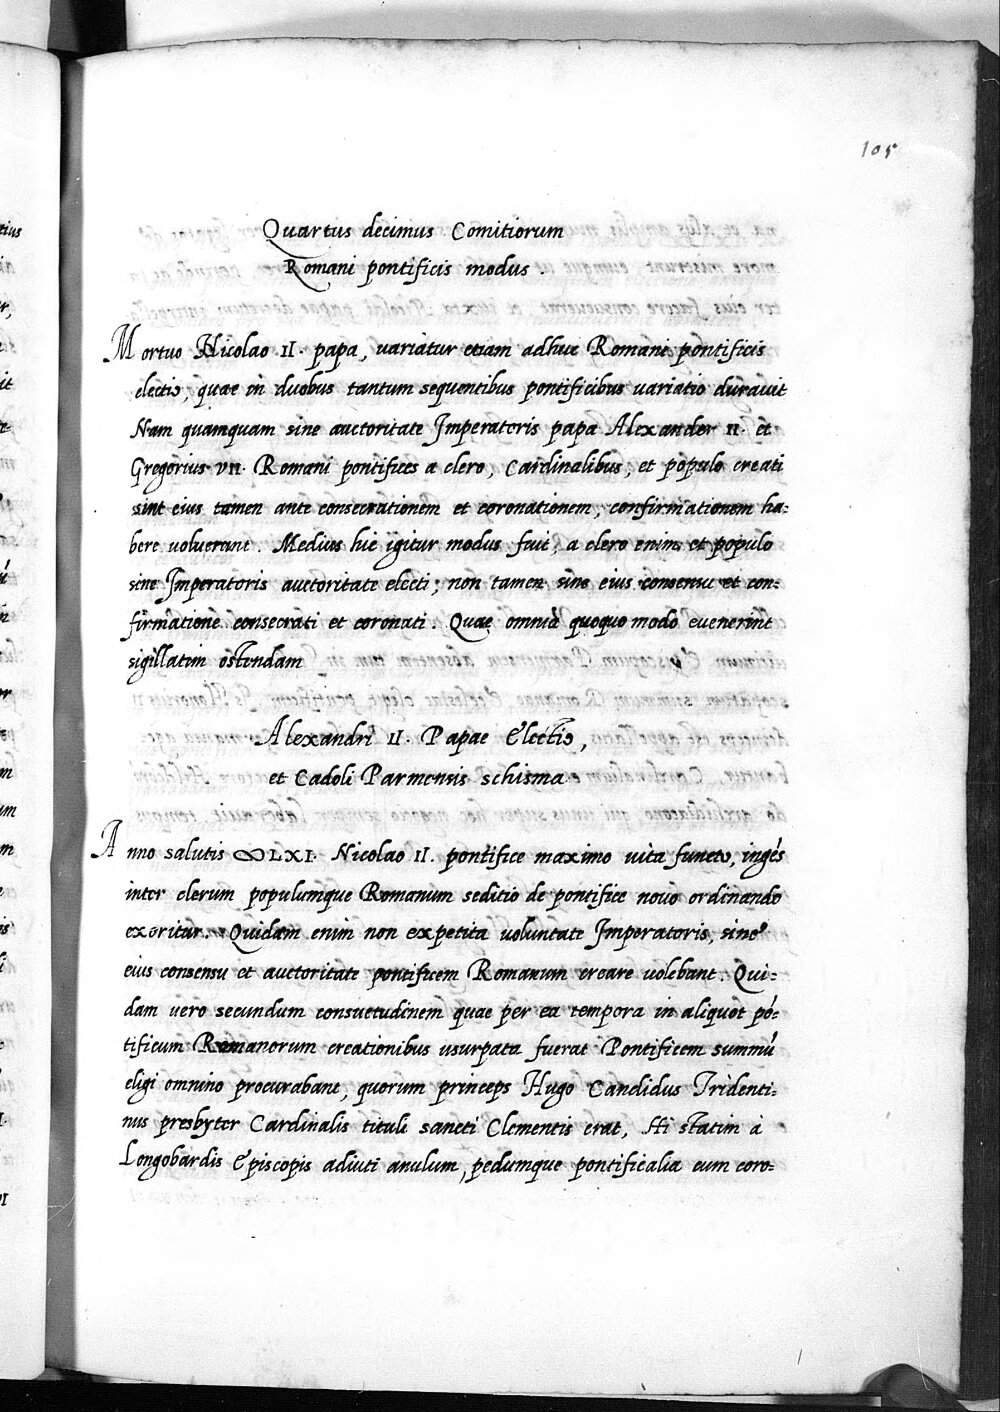 105
Quartus decimus Comitiorum
Romani pontificis modus.
Mortuo Nicolao II. papa, variatur etiam adhuc Romani pontificis
electio, quae in duobus tantum sequentibus pontificibus variatio durauit
Nam quamquam sine auctoritate Imperatoris papa Alexander II. et
Gregorius VII. Romani pontifices a clero, Cardinalibus, et populo creati
sint eius tamen ante consecrationem et coronationem, confirmationem ha:
bere voluerunt. Medius hic igitur modus fuit, a clero enim et populo
sine Imperatoris auctoritate electi; non tamen sine eius consensu et con:
firmatione consecrati et coronati. Quae omnia quoquo modo evenerint
sigillatim ostendam
Alexandri II. Papae Electio,
et Cadoli Parmensis schisma
Anno salutis ∞LXI. Nicolao II. pontifice maximo uita functo, ingés
inter clerum populumque Romanum seditio de pontifice nouo ordinando
exoritur. Quidam enim non expetita uoluntate Imperatoris, sine
eius consensu et auctoritate pontificem Romanum creare uolebant. Qui:
dam uero secundum consuetudinem quae per ea tempora in aliquot pó:
tificum Romanorum creationibus usurpata fuerat Pontificem summú
eligi omnino procurabant, quorum princeps Hugo Candidus Tridenti:
nus presbyter Cardinalis tituli sancti Clementis erat, Hi statim à
Longobardis Episcopis adiuti anulum, pedumque pontificalia cum coro: